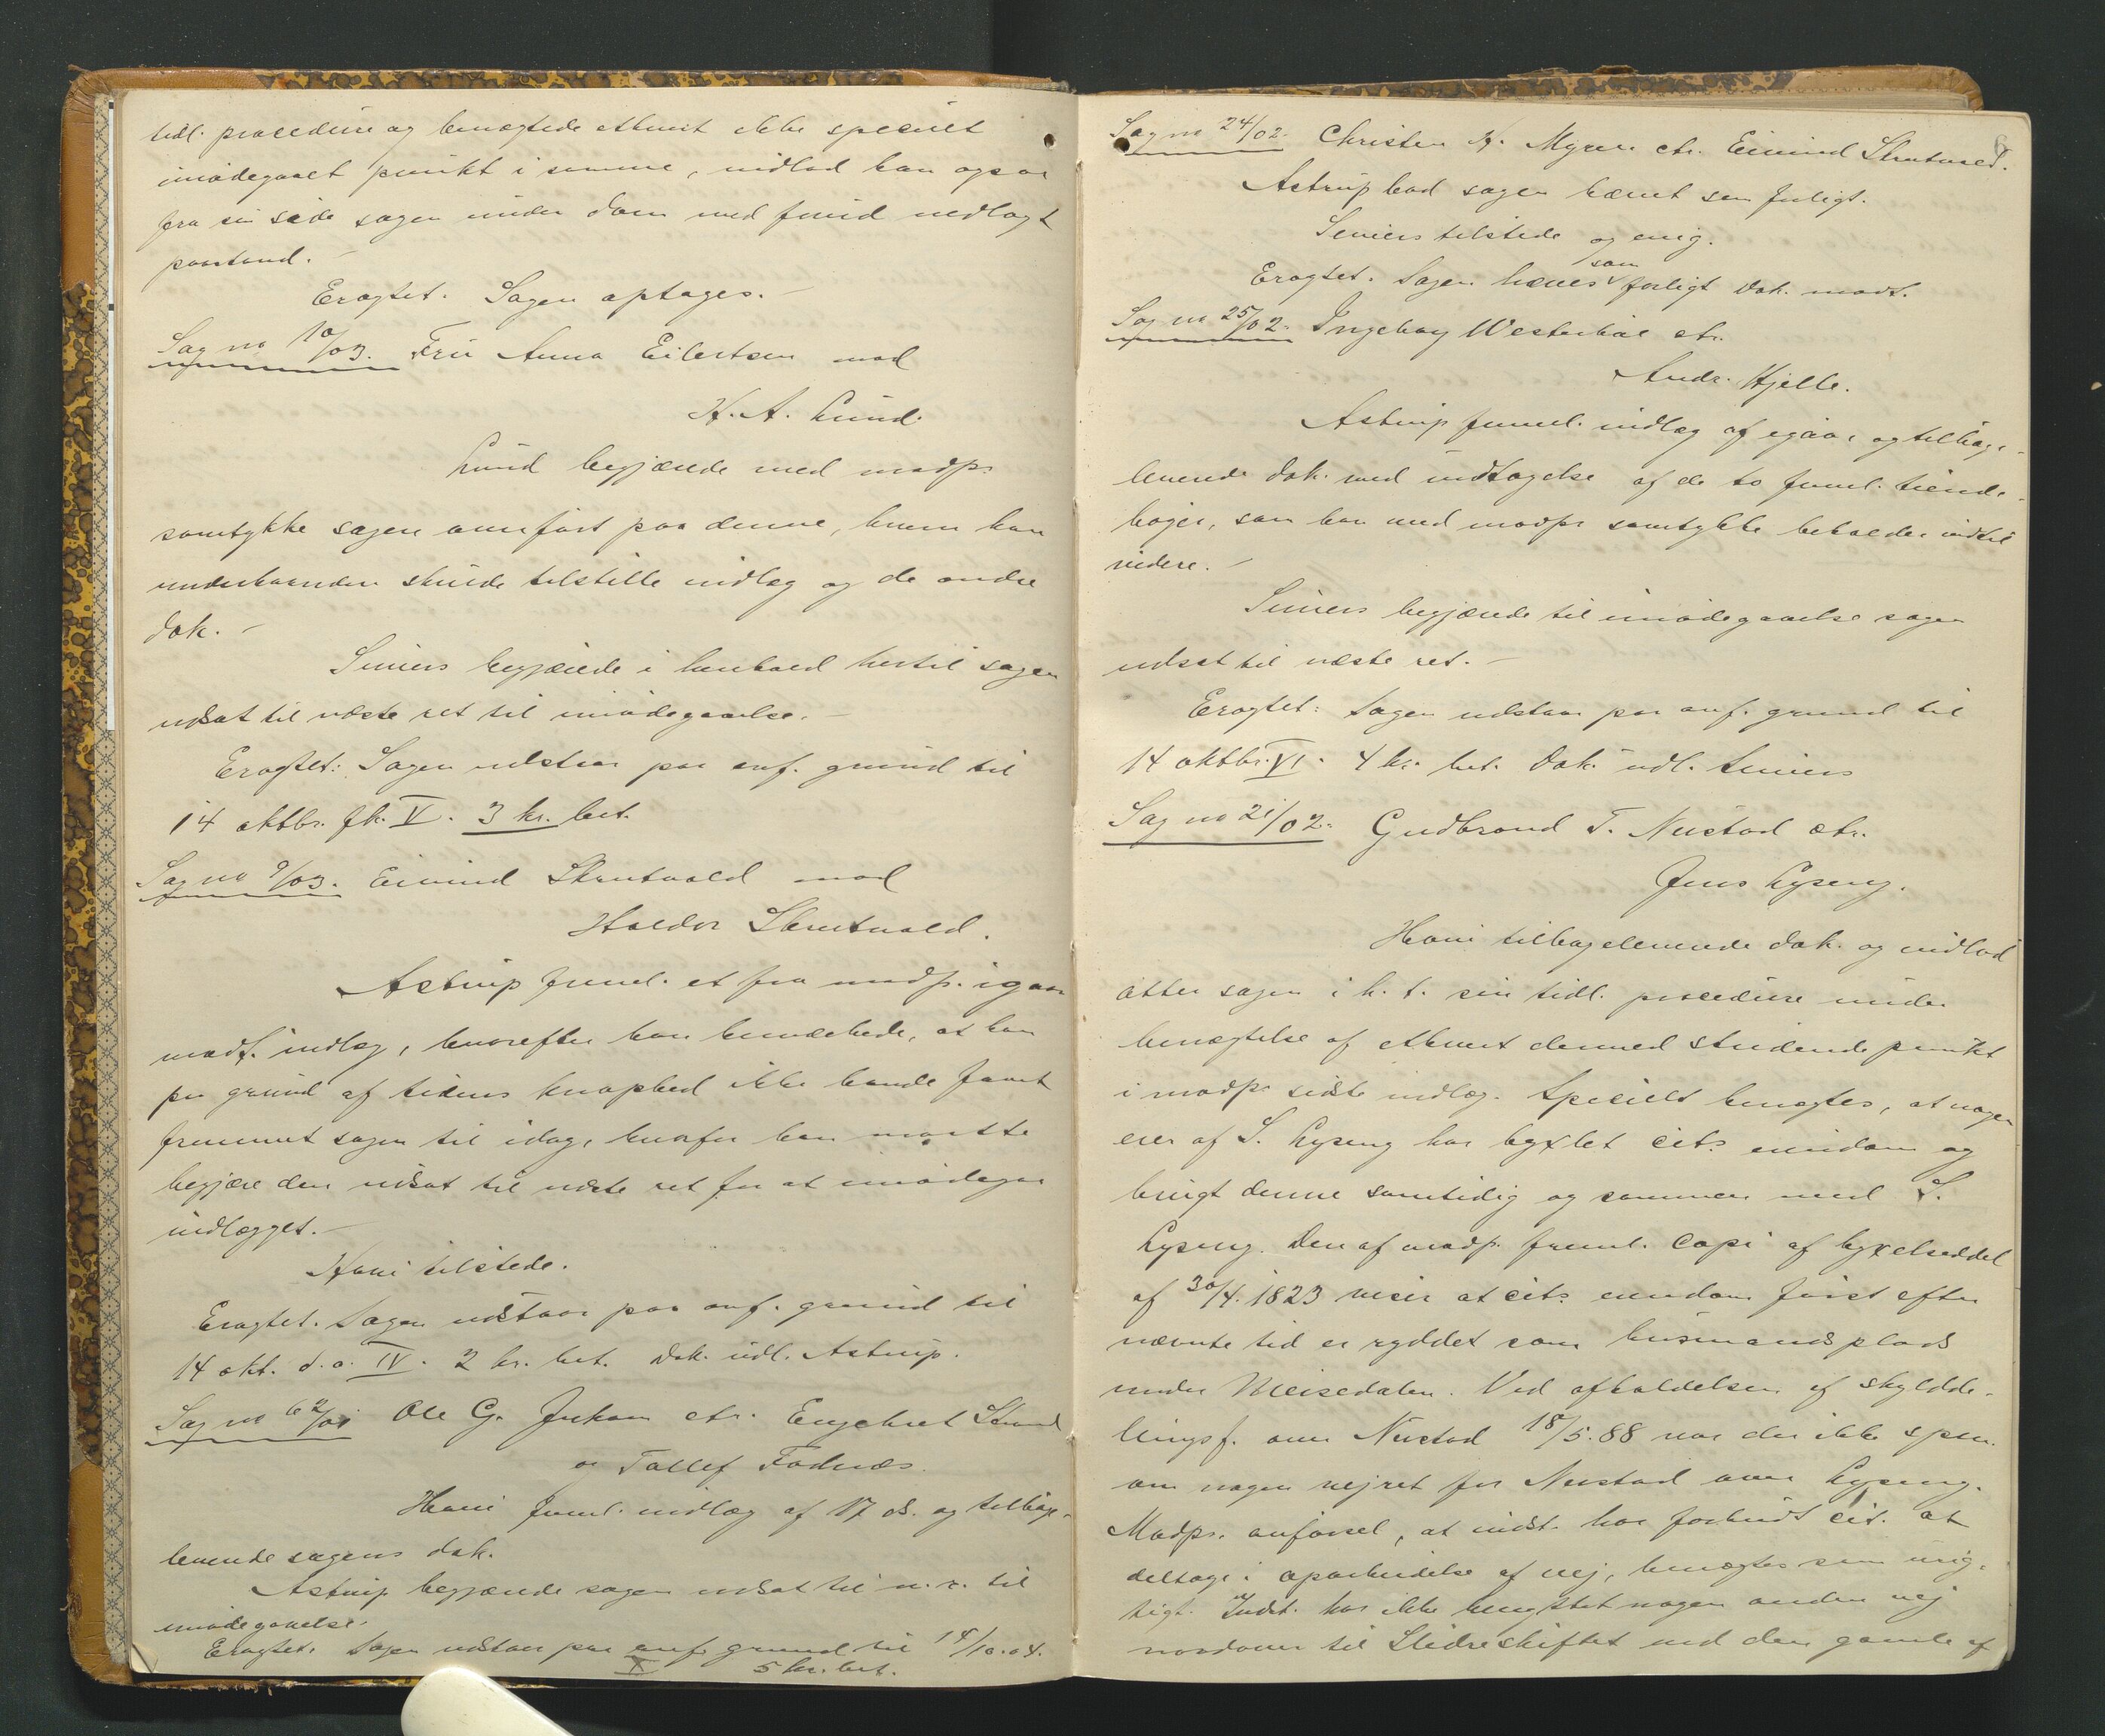 tidl. procedure og benægtede ethvert ikke specielt
imødegaaet punkt i samme, indlod han ogsaa
fra sin side sagen under dom med fremd. nedlagt
paastand. –
Eragtet. Sagen optages. –
Sag no 10/03. Fru Anna Eilertsen mod
H. A. Lund.
Lund begjærede med modp.
samtykke sagen overført paa denne, hvem han
underhaanden skulde tilstille indlæg og de andre
dok. –
Siwers begjærede i henhold hertil sagen
udsat til næste ret til imødegaaelse. –
Eragtet: Sagen udstaar paa anf. grund til
14 oktbr. fk. V. 3 kr. bet.
Sag no 9/03. Eivind Skrutvold mod
Haldor Skrutvold.
Astrup freml. et fra modp. igaar
modt. indlæg, hvorefter han bemærkede, at han
pa grund af tidens knaphed ikke havde faaet
fremmet sagen til idag, hvorfor han maatte
begjære den udsat til næste ret for at imødegaa
indlægget. –
Hovi tilstede.
Eragtet. Sagen udstaar paa anf. grund til
14 okt. d. a. IV. 2 kr. bet. Dok. udl. Astrup.
Sag no 62/01 Ole G. ctr. Engebret Strand
og Tollef Fodnæs.
Hovi freml. indlæg af 17 ds. og tilbage-
leverede sagens dok.
Astrup begjærede sagen udsat til n. r. til
imødegaaelse.
Eragtet. Sagen udstaar paa anf. grund til 14/10.04.
X 5 kr. bet.
Sag no 24/02. Christen K. Myren ctr. Eivind Skrutvold.
Astrup bad sagen hævet som forligt.
Siwers tilstede og enig.
Eragtet. Sagen hæves som forligt Dok. modt.
Sag no 25/02. Ingeborg Westerbøe ctr.
Andr. Hjelle.
Astrup freml. indlæg af igaar og tilbage-
leverede dok. med undtagelse af de to freml. tiende-
bøger, som han med modps samtykke beholder indtil
videre. –
Siwers begjærede til imødegaaelse sagen
udsat til næste ret. –
Eragtet: Sagen udstaar paa anf. grund til
14 oktbr. VI. 4 kr. bet. Dok. udl. Siwers
Sag no 21/02. Gudbrand T. Nustad ctr.
Jens Lyseng.
Hovi tilbageleverede dok. og indlod
atter sagen i h. t. sin tidl. procedure under
benægtelse af ethvert dermed stridende punkt
i modps sidste indlæg. Specielt benægtes, at nogen
eier af S. Lyseng har bygslet cits eiendom og
brugt denne samtidig og sammen med S.
Lyseng. Den af modp. freml. Copi af bygselseddel
af 30/4. 1823 viser at cits eiendom først efter
nævnte tid er ryddet som husmandsplads
under . Ved afholdelsen af skyldde-
lingsf. over Nustad 18/5. 88 var der ikke spm.
om nogen vejret for Nustad over Lyseng.
Modps. anførsel, at indst. har forbudt cit. at
deltage i oparbeidelse af vej, benægtes som urig-
tigt. Indst. har ikke benyttet nogen anden vej
nordover til Slidreskiftet end den gamle af